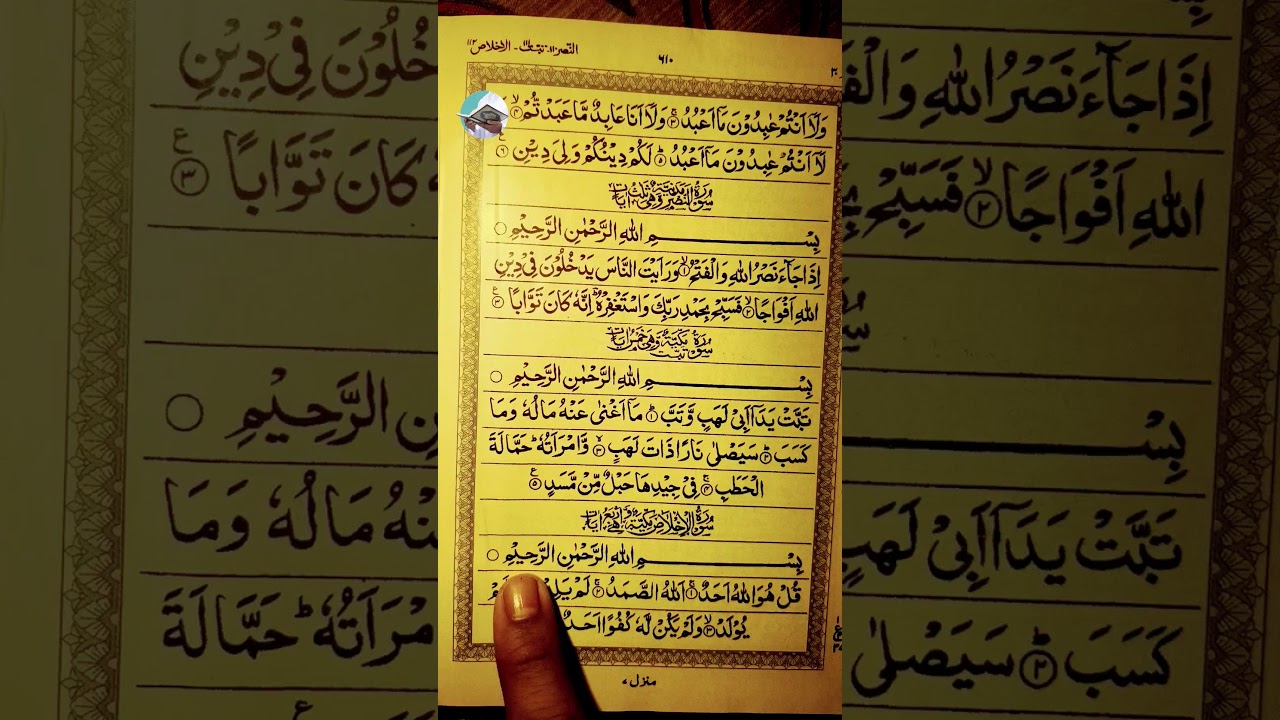 النصر ١١٠ تبت ١١١ الاخلاص ١١٢
٦١٠
وَلَاۤ اَنْتُمْ عٰبِدُوْنَ مَاۤ اَعْبُدُ ۚ۝۳ وَلَاۤ اَنَا عَابِدٌ مَّا عَبَدْتُّمْ ۙ۝۴
لَاۤ اَنْتُمْ عٰبِدُوْنَ مَاۤ اَعْبُدُ ؕ۝۵ لَكُمْ دِيْنُكُمْ وَلِیَ دِيْنِ ۝۶
سُوْرَةُ النَّصْرِ مَدَنِيَّةٌ وَّهِیَ ثَلٰثُ اٰيَاتٍ
بِسْمِ اللهِ الرَّحْمٰنِ الرَّحِيْمِ ۝
اِذَا جَآءَ نَصْرُ اللهِ وَالْفَتْحُ ۙ۝۱ وَرَاَيْتَ النَّاسَ يَدْخُلُوْنَ فِیْ دِيْنِ
اللهِ اَفْوَاجًا ۙ۝۲ فَسَبِّحْ بِحَمْدِ رَبِّكَ وَاسْتَغْفِرْهُ ؕ اِنَّهٗ كَانَ تَوَّابًا ۝۳ ع
سُوْرَةُ تَبَّتْ مَكِّيَّةٌ وَّهِیَ خَمْسُ اٰيَاتٍ
بِسْمِ اللهِ الرَّحْمٰنِ الرَّحِيْمِ ۝
تَبَّتْ يَدَاۤ اَبِیْ لَهَبٍ وَّتَبَّ ؕ۝۱ مَاۤ اَغْنٰى عَنْهُ مَالُهٗ وَمَا
كَسَبَ ؕ۝۲ سَيَصْلٰى نَارًا ذَاتَ لَهَبٍ ۝۳ وَّامْرَاَتُهٗ ؕ حَمَّالَةَ
الْحَطَبِ ۚ۝۴ فِیْ جِيْدِهَا حَبْلٌ مِّنْ مَّسَدٍ ۝۵ ع
سُوْرَةُ الْاِخْلَاصِ مَكِّيَّةٌ وَّهِیَ اَرْبَعُ اٰيَاتٍ
بِسْمِ اللهِ الرَّحْمٰنِ الرَّحِيْمِ ۝
قُلْ هُوَ اللهُ اَحَدٌ ۚ۝۱ اَللهُ الصَّمَدُ ۚ۝۲ لَمْ
يُوْلَدْ ۙ۝۳ وَلَمْ يَكُنْ لَّهٗ كُفُوًا اَحَدٌ
منزل ۷